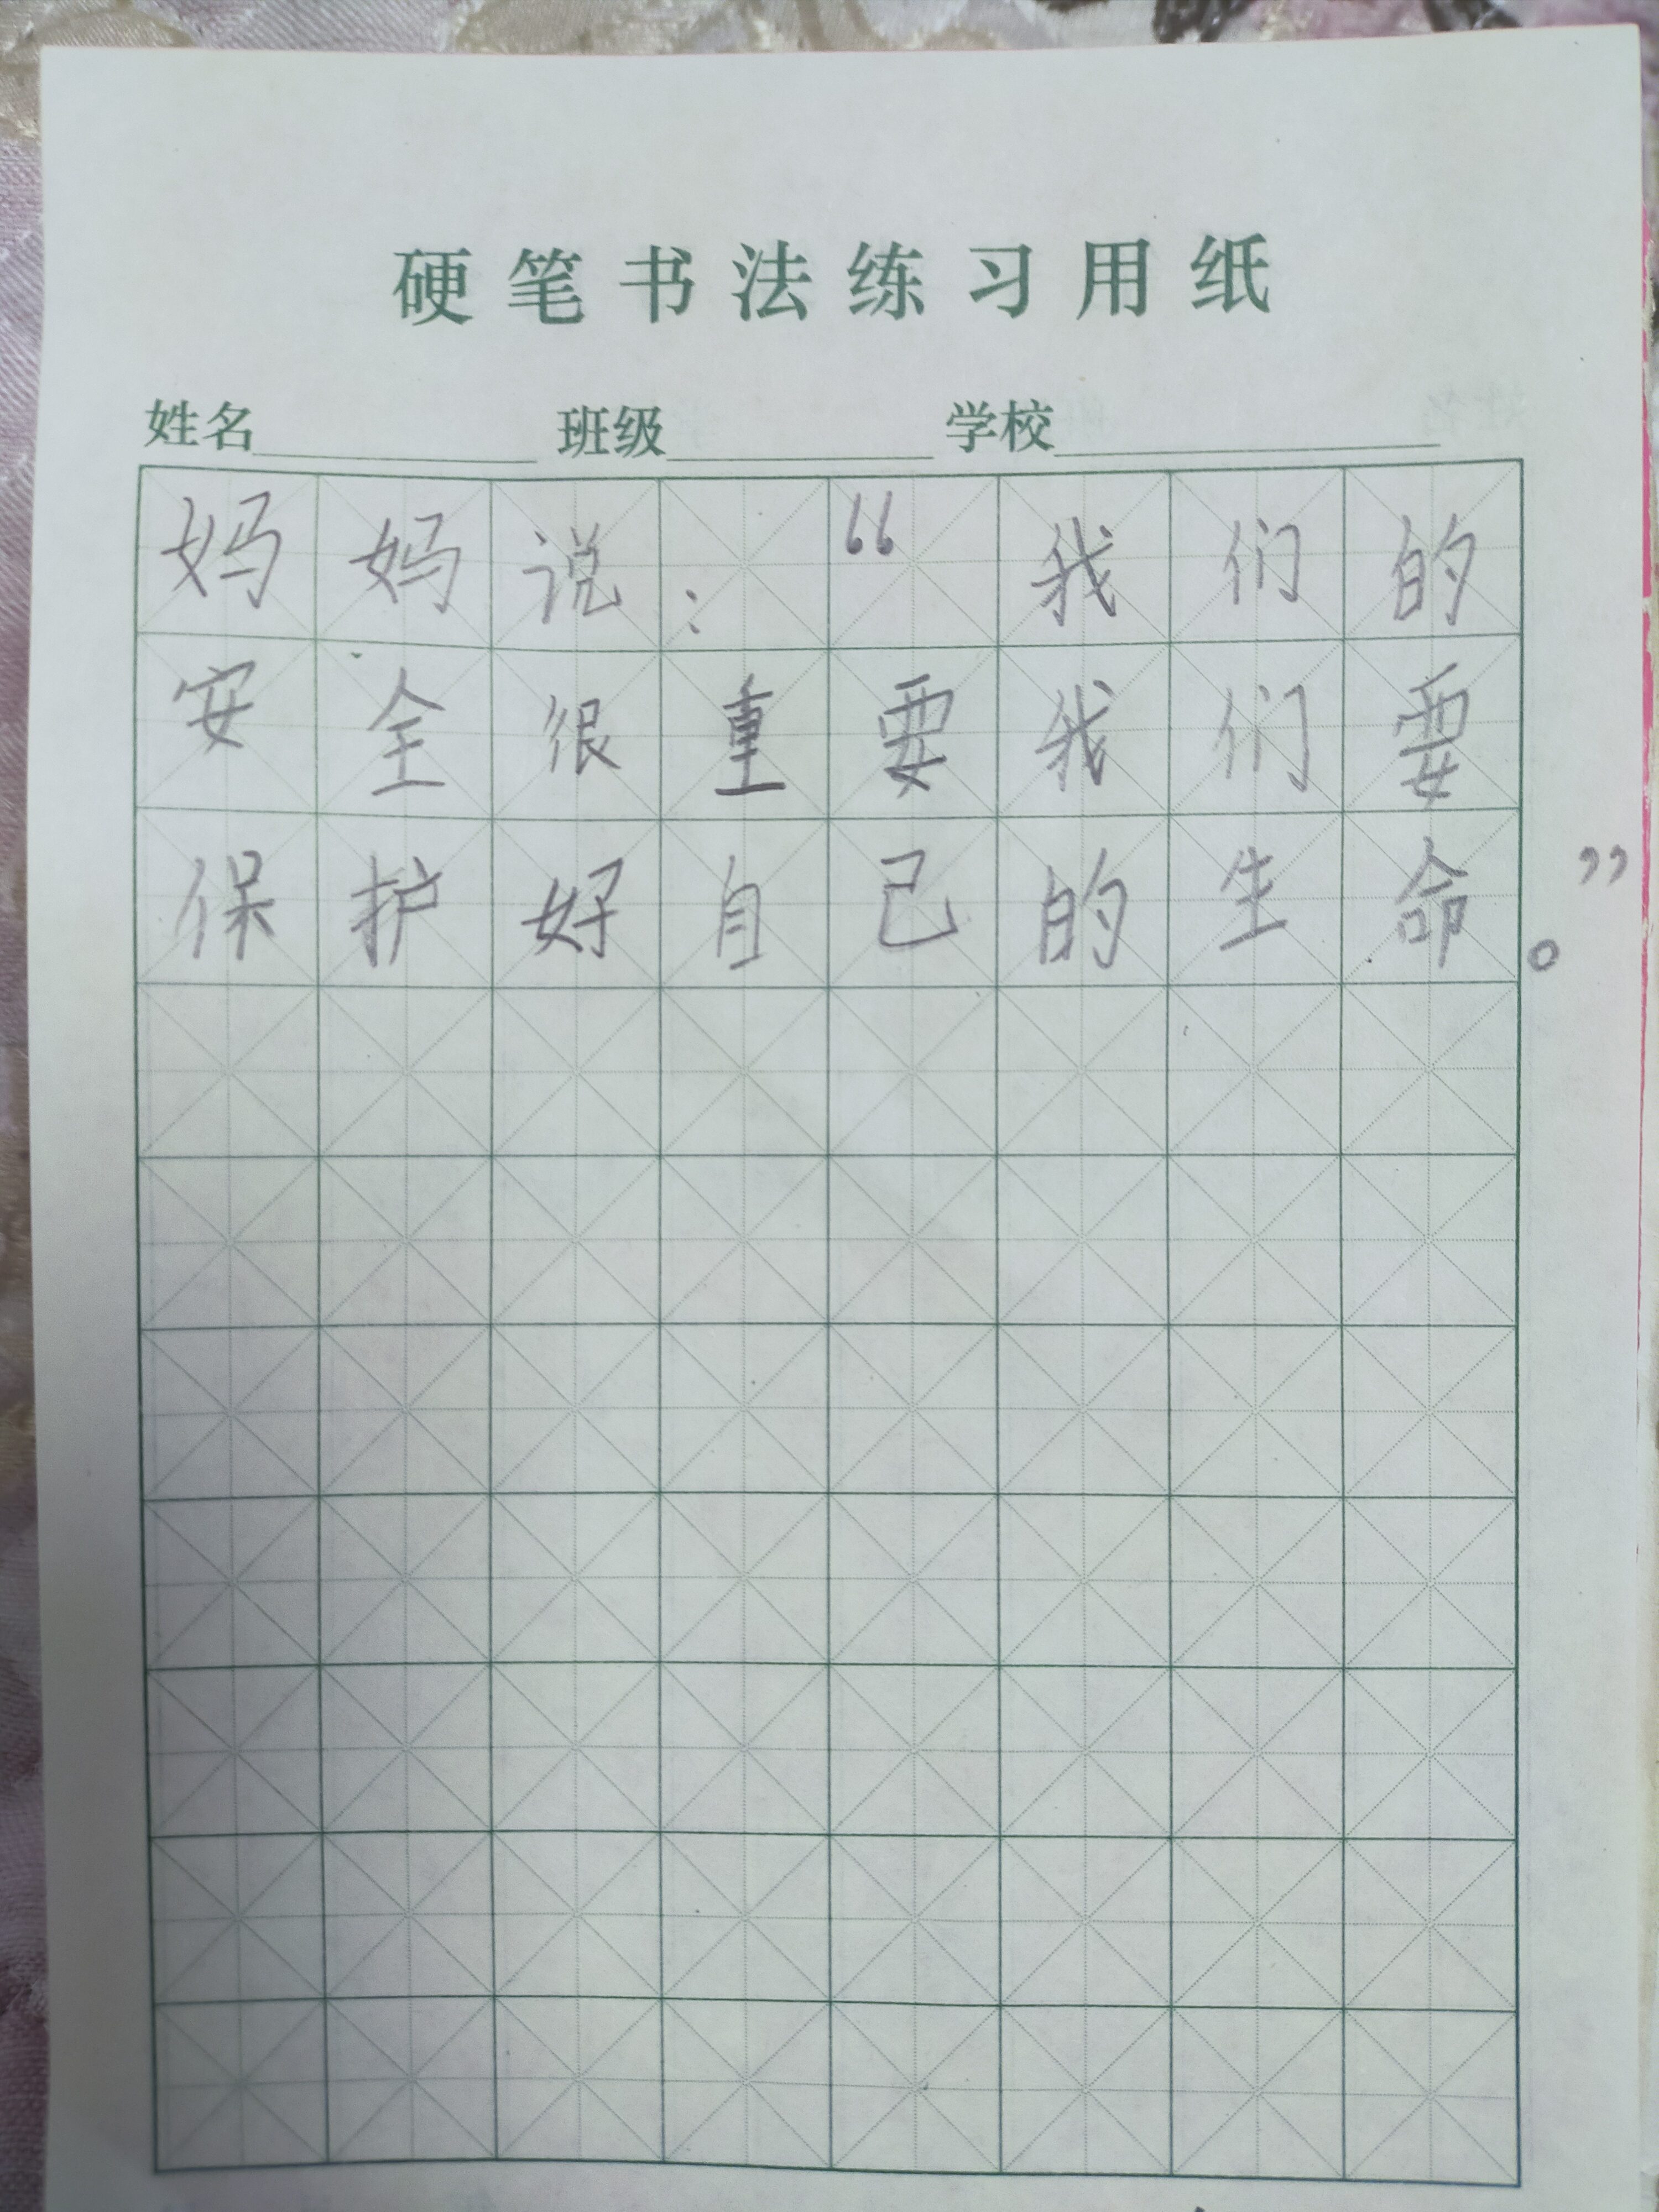 硬笔书法练习用纸
姓名 班级 学校
妈妈说：“我们的
安全很重要我们要
保护好自己的生命。”